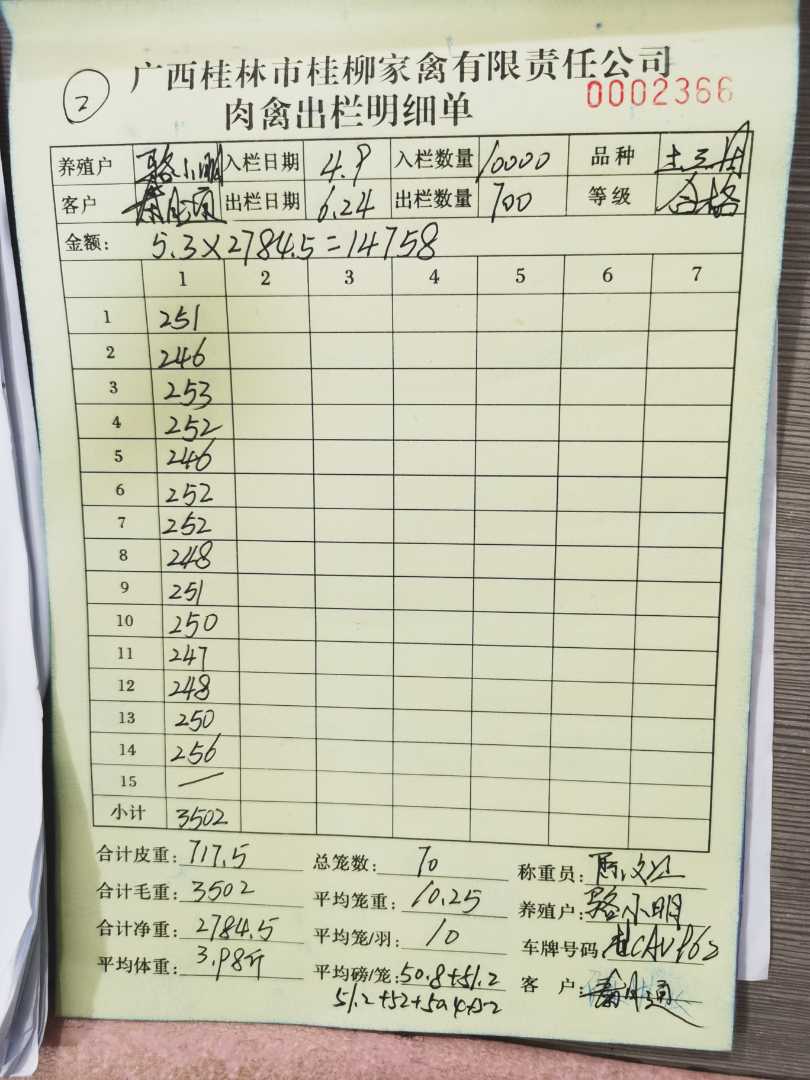 ②
广西桂林市桂柳家禽有限责任公司
肉禽出栏明细单 0002366
养殖户 骆小明 入栏日期 4.9 入栏数量 10000 品种
客户 出栏日期 6.24 出栏数量 700 等级 合格
金额: 5.3×2784.5=14758
1 2 3 4 5 6 7
1 251
2 246
3 253
4 252
5 246
6 252
7 252
8 248
9 251
10 250
11 247
12 248
13 250
14 256
15 —
小计 3502
合计皮重: 717.5 总笼数: 70 称重员:
合计毛重: 3502 平均笼重: 10.25 养殖户: 骆小明
合计净重: 2784.5 平均笼/羽: 10 车牌号码:
平均体重: 3.98斤 平均磅/笼: 50.8+51.2 客 户:
51.2+52+50.4+52